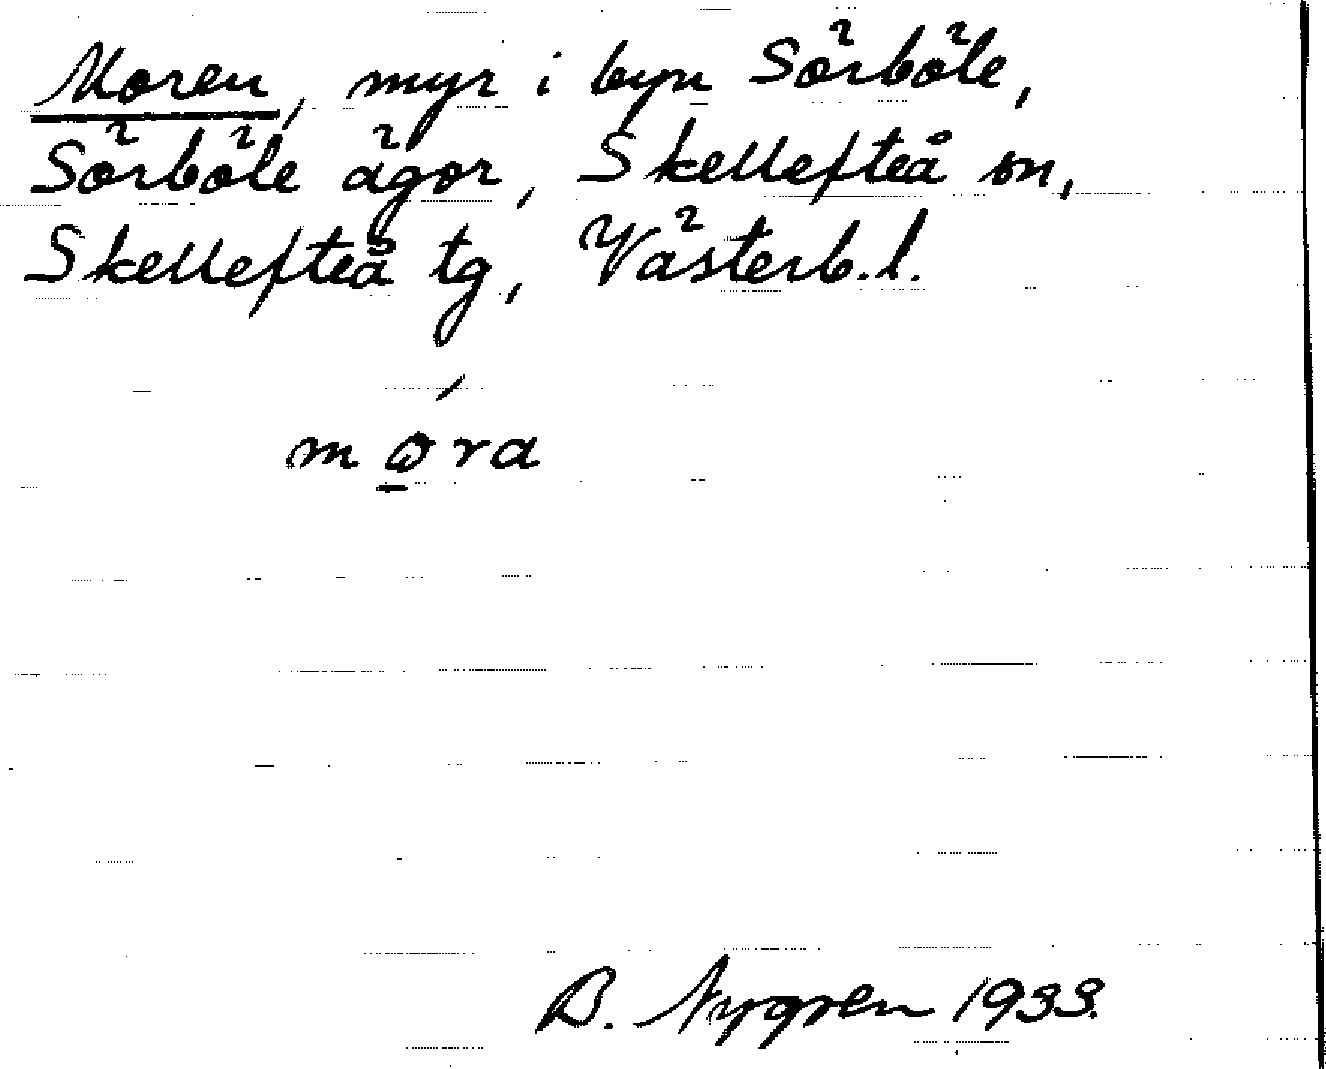 Moren, myr i byn Sörböle,
Sörböle ägor, Skellefteå sn,
Skellefteå tg, Västerb.l.
møra
B. Nygren 1933.